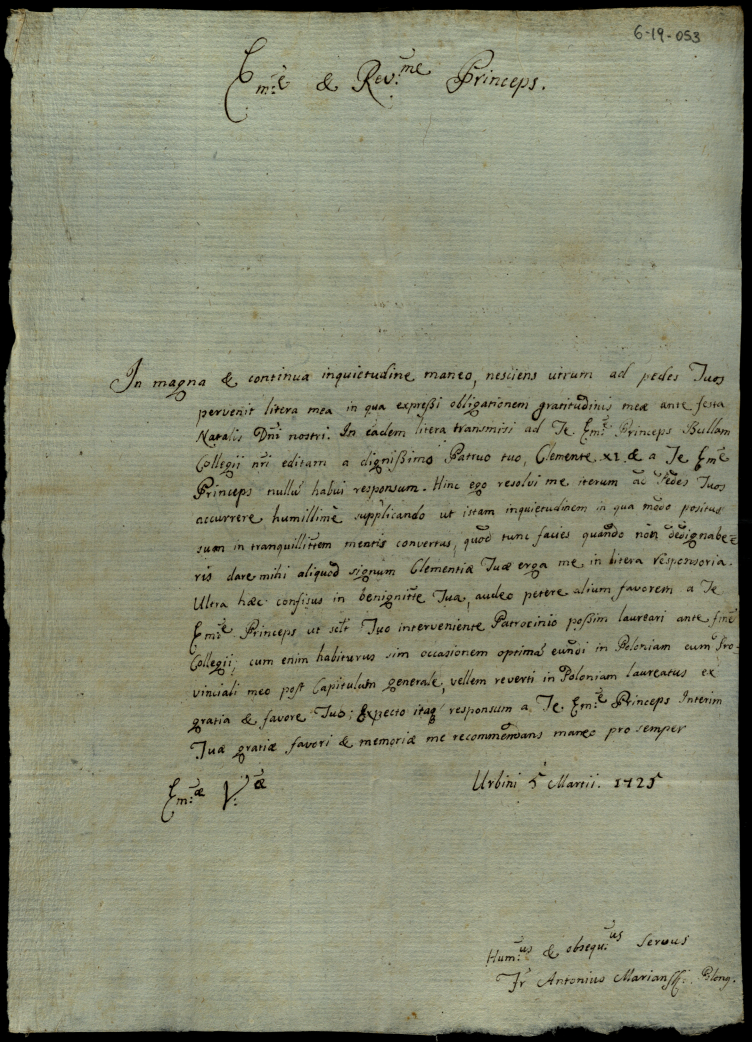 6-19-053
Em:e & Rev:me Princeps.
In magna & continua inquietudine maneo, nesciens utrum ad pedes Tuos
pervenit litera mea in qua expressi obligationem gratitudinis meæ ante festa
Natalis Dñi nostri. In eadem litera transmisi ad Te Em:e Princeps Bullam
Collegii nri editam a dignissimo Patruo tuo, Clemente XI. & a Te Em:e
Princeps nullũ habui responsum. Hinc ego resolvi me iterum ad Pedes Tuos
accurrere humillimè supplicando ut istam inquietudinem in qua modo positus
sum in tranquillittem mentis convertas, quod tunc facies quando non dedignabe=
ris dare mihi aliquod signum Clementiæ Tuæ erga me in litera responsoria.
Ultra hæc confisus in benignitte Tua, audeo petere alium favorem a Te
Em:e Princeps ut Tuo interveniente Patrocinio possim laureari ante finẽ
Collegii, cum enim habiturus sim occasionem optimã eundi in Poloniam cum Pro-
vinciali meo post Capitulum generale, vellem reverti in Poloniam laureatus ex
gratia & favore Tuo; Expecto itaq responsum a Te Em:e Princeps Interim
Tuæ gratiæ favori & memoriæ me recommendans maneo pro semper
Em:æ V:æ
Urbini 5 Martii. 1725
Hum:us & obsequ:us Servus
Fr Antonius Marianski Polonq.